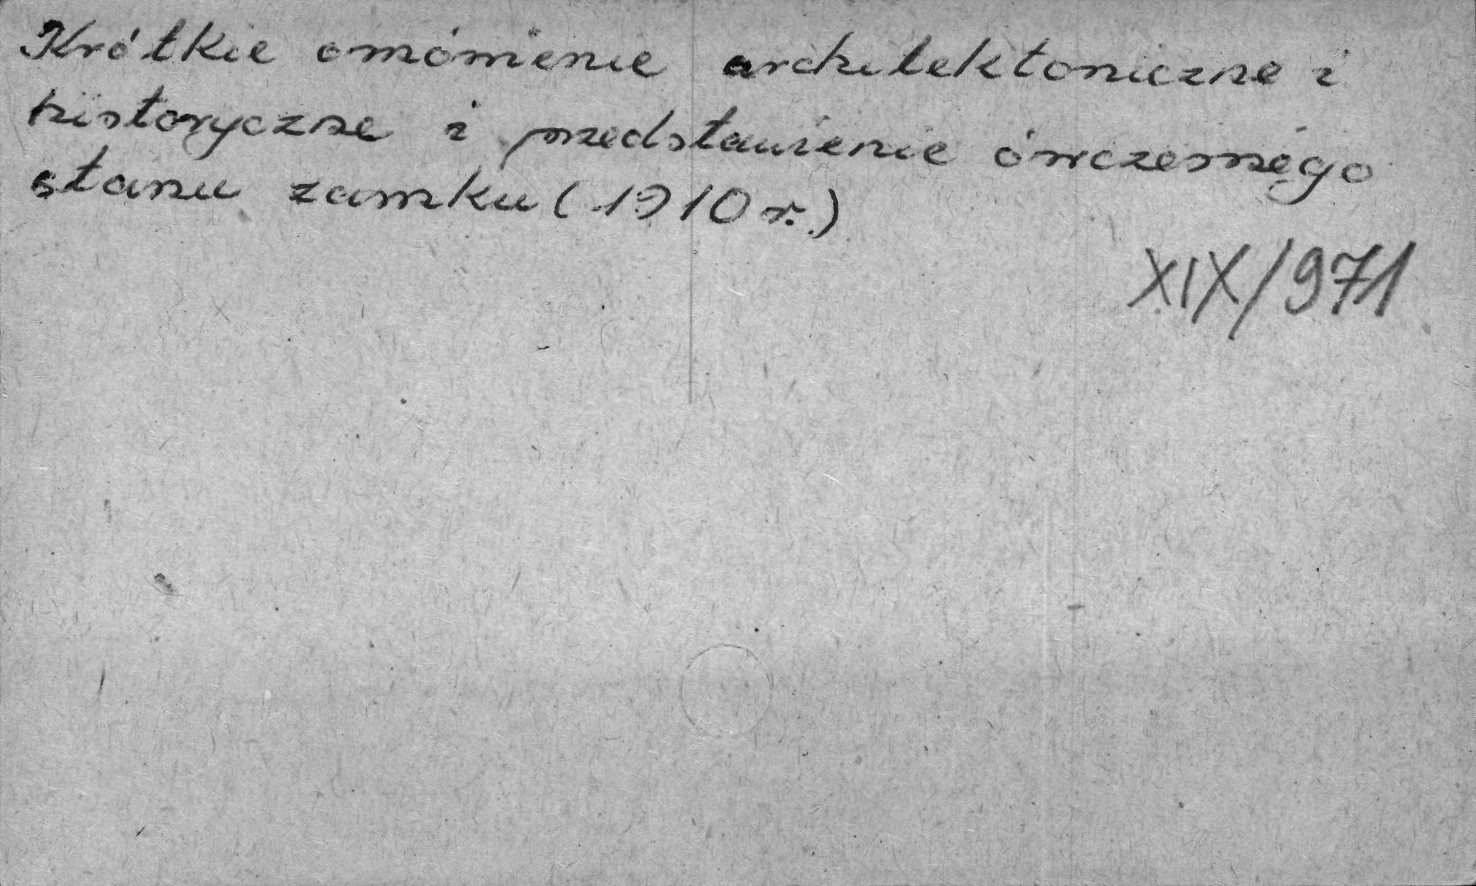 Krótkie omówienie architektoniczne i
historyczne i przedstawienie ówczesnego
stanu zamku (1910 r.)
XIX/971